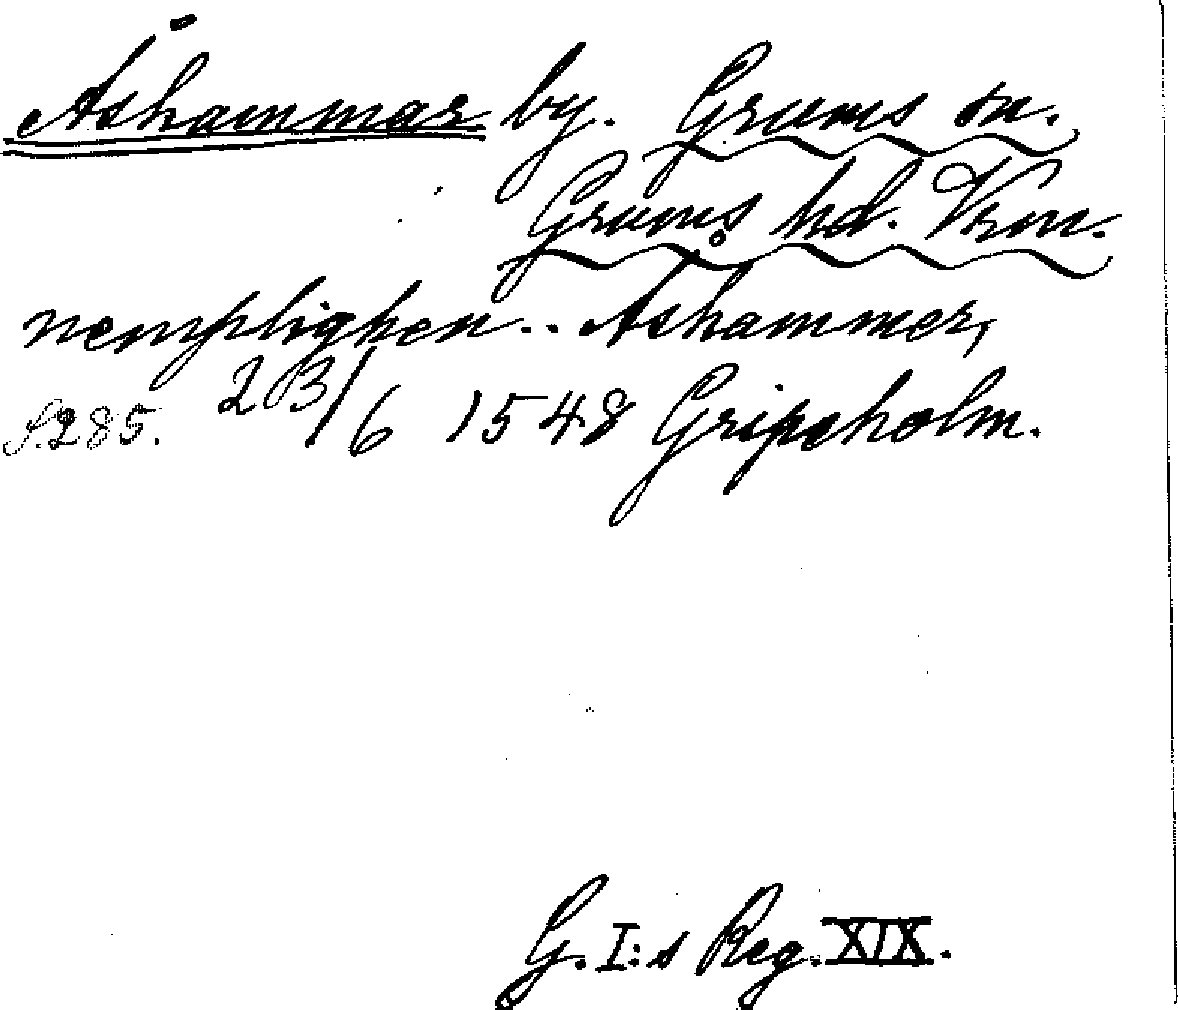 Åshammar by. Grums sn.
Grums hd. Vrm.
nemplighen .. Åshammer,
S. 285. 23/6 1548 Gripsholm.
G. I:s Reg. XIX.